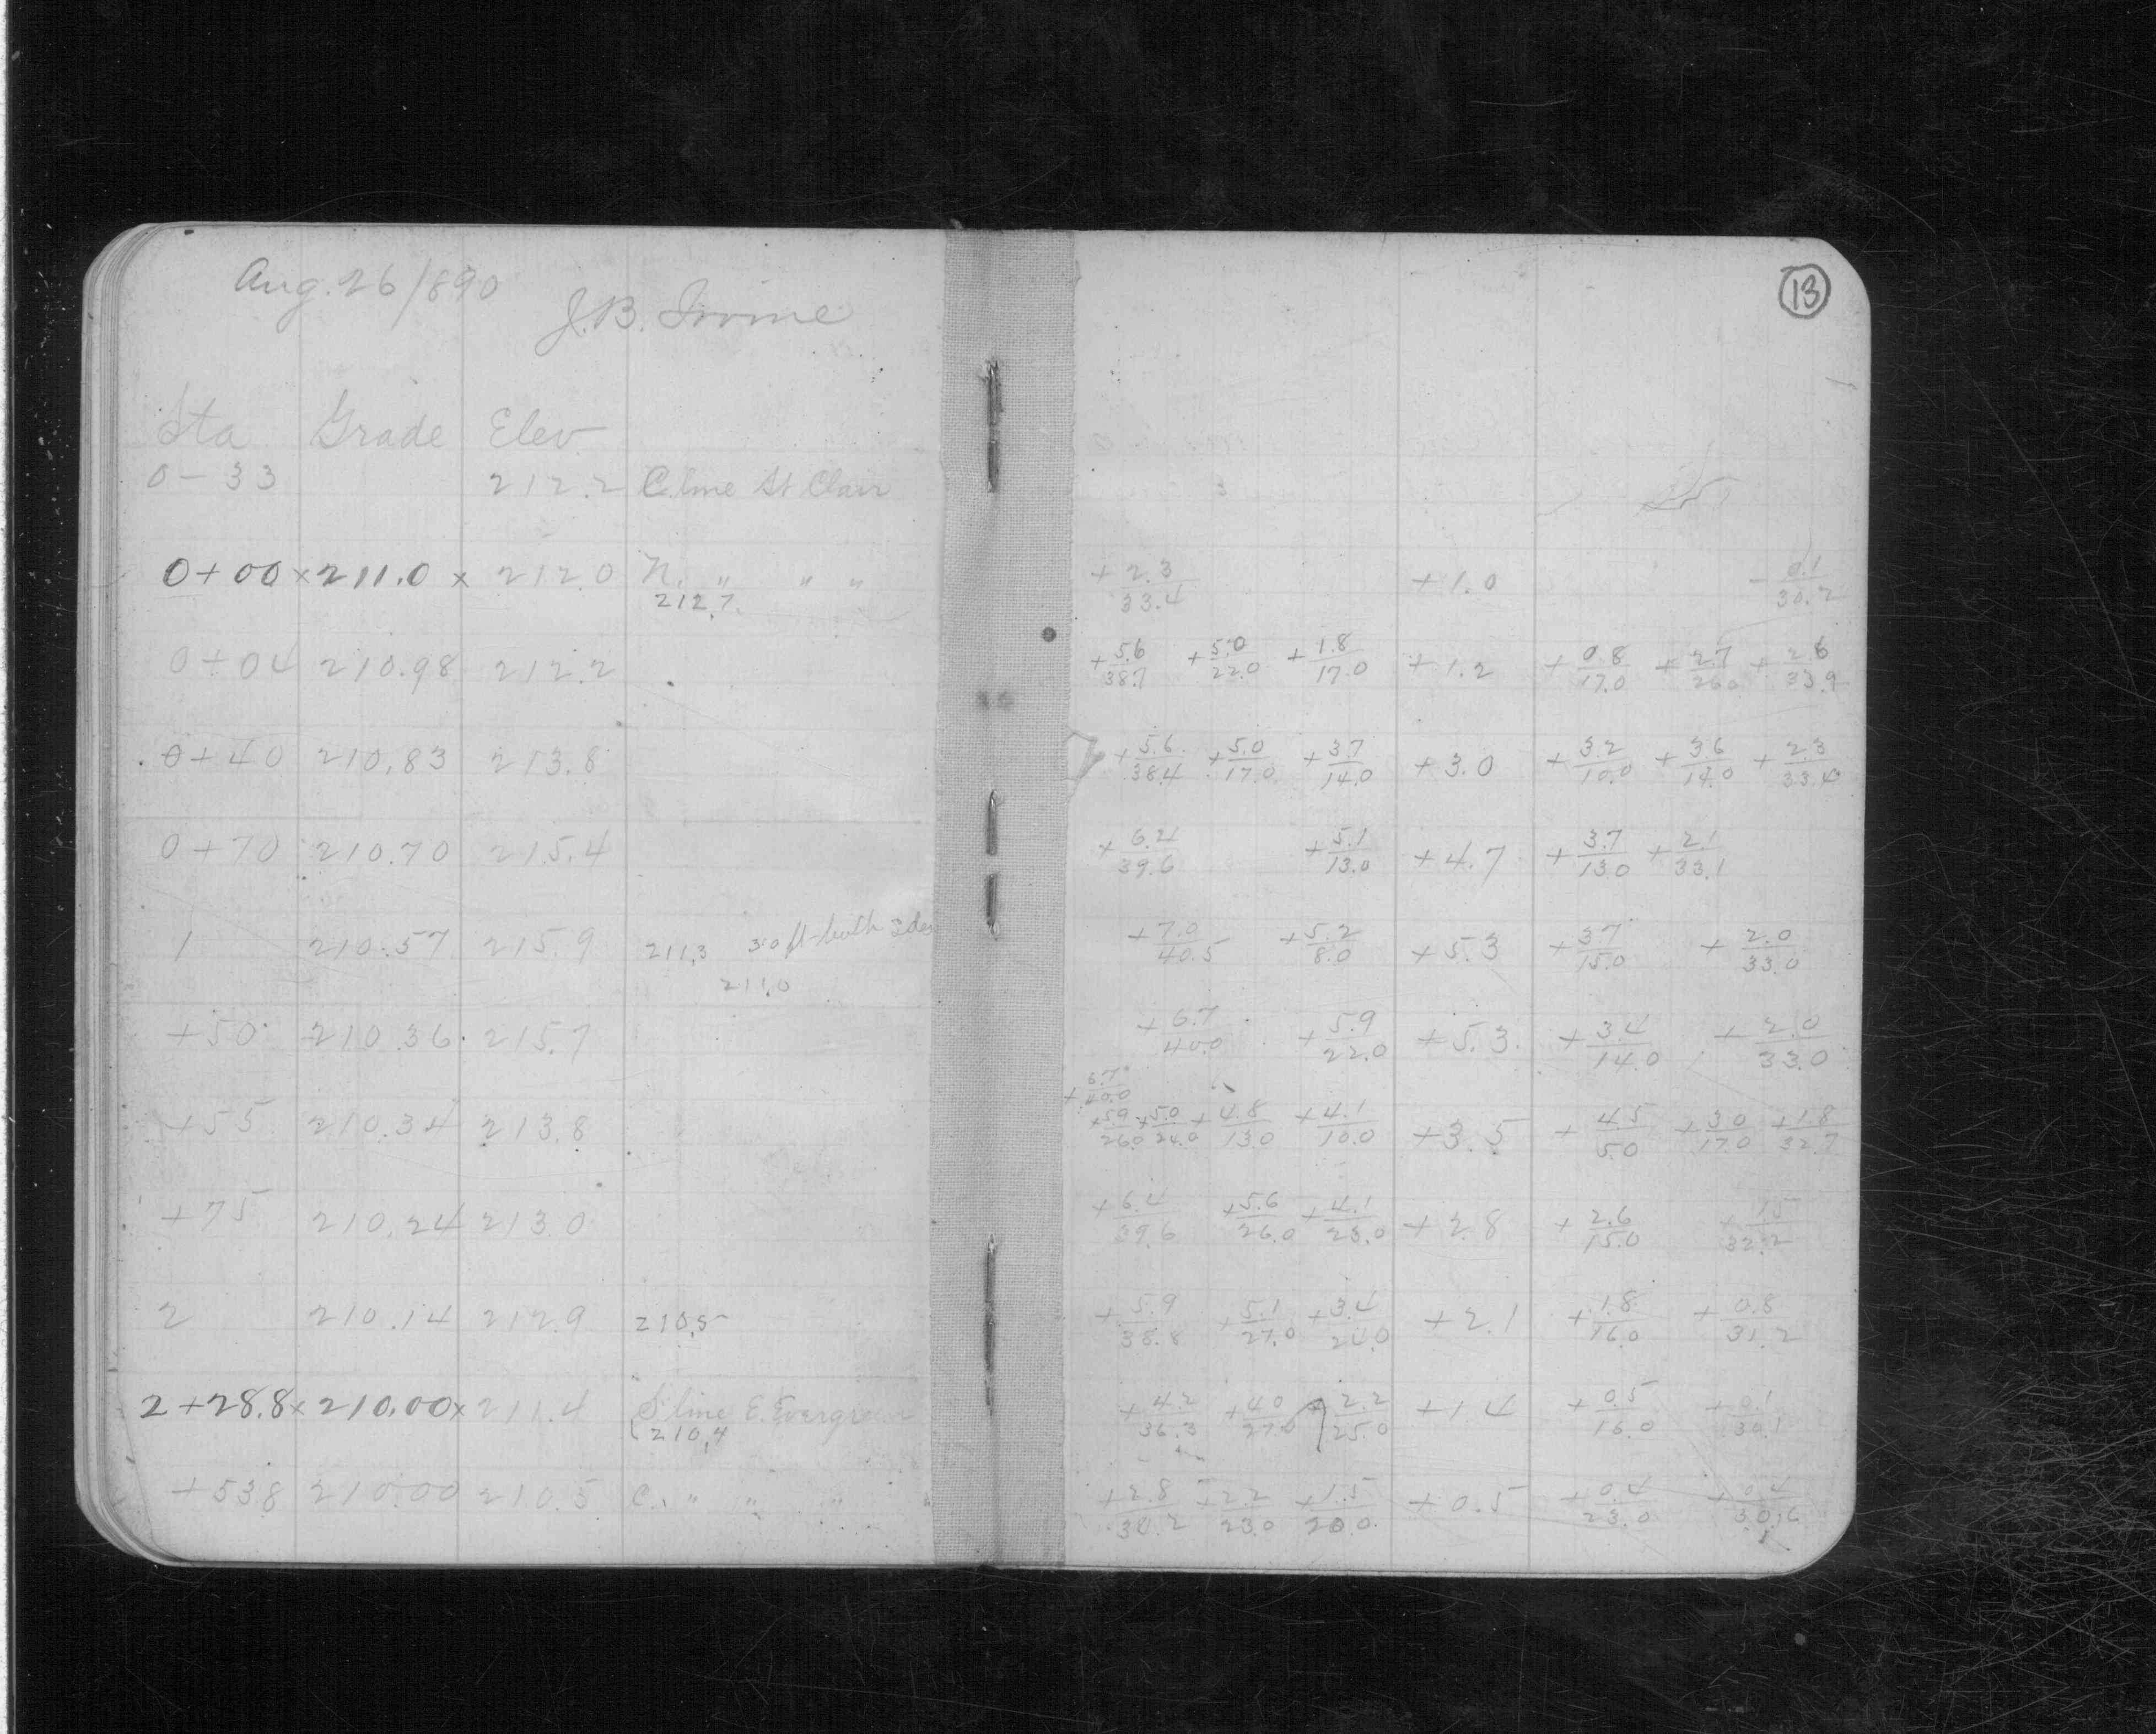 Aug. 26/890
J.B. Irvine
13
Sta Grade Elev
0-33 212.2 C. line St Clair
0+00 x 211.0 x 212.0 N. " " " +2.3/33.4 +1.0 -0.1/30.2
212.7
0+04 210.98 212.2 +5.6/38.7 +5.0/22.0 +1.8/17.0 +1.2 +0.8/17.0 +2.7/26.0 +2.6/33.9
0+40 210.83 213.8 +5.6/38.4 +5.0/17.0 +3.7/14.0 +3.0 +3.2/10.0 +3.6/14.0 +2.3/33.4
0+70 210.70 215.4 +6.4/39.6 +5.1/13.0 +4.7 +3.7/13.0 +2.1/33.1
1 210.57 215.9 211.3 30 ft both sides +7.0/40.5 +5.2/8.0 +5.3 +3.7/15.0 +2.0/33.0
211.0
+50 210.36 215.7 +6.7/40.0 +5.9/22.0 +5.3 +3.4/14.0 +2.0/33.0
+6.7/40.0
+55 210.34 213.8 +5.9/26.0 +5.0/24.0 +4.8/13.0 +4.1/10.0 +3.5 +4.5/5.0 +3.0/17.0 +1.8/32.7
+75 210.24 213.0 +6.4/39.6 +5.6/26.0 +4.1/23.0 +2.8 +2.6/15.0 +1.5/32.2
2 210.14 212.9 210.5 +5.9/38.8 +5.1/27.0 +3.4/24.0 +2.1 +1.8/16.0 +0.8/31.2
2+28.8 x 210.00 x 211.4 S line E. Evergreen +4.2/36.3 +4.0/27.0 +2.2/25.0 +1.4 +0.5/16.0 +0.1/30.1
210.4
+53.8 210.00 210.5 C. " " " " +2.8/34.2 +2.2/23.0 +1.5/20.0 +0.5 +0.4/23.0 +0.4/30.6